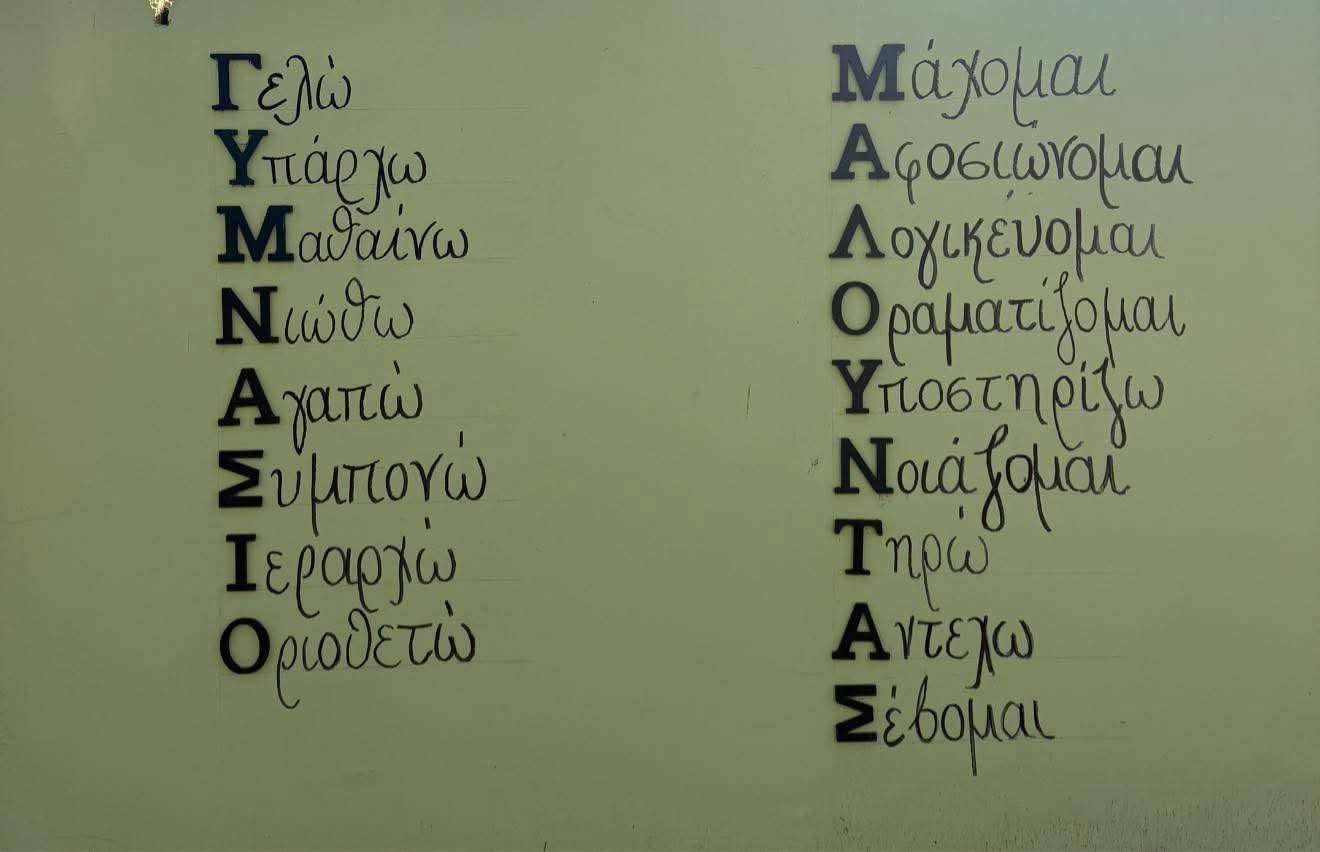 Γελώ
Υπάρχω
Μαθαίνω
Νιώθω
Αγαπώ
Συμπονώ
Ιεραρχώ
Οριοθετώ
Μάχομαι
Αφοσιώνομαι
Λογικεύομαι
Οραματίζομαι
Υποστηρίζω
Νοιάζομαι
Τηρώ
Αντεχω
Σέβομαι